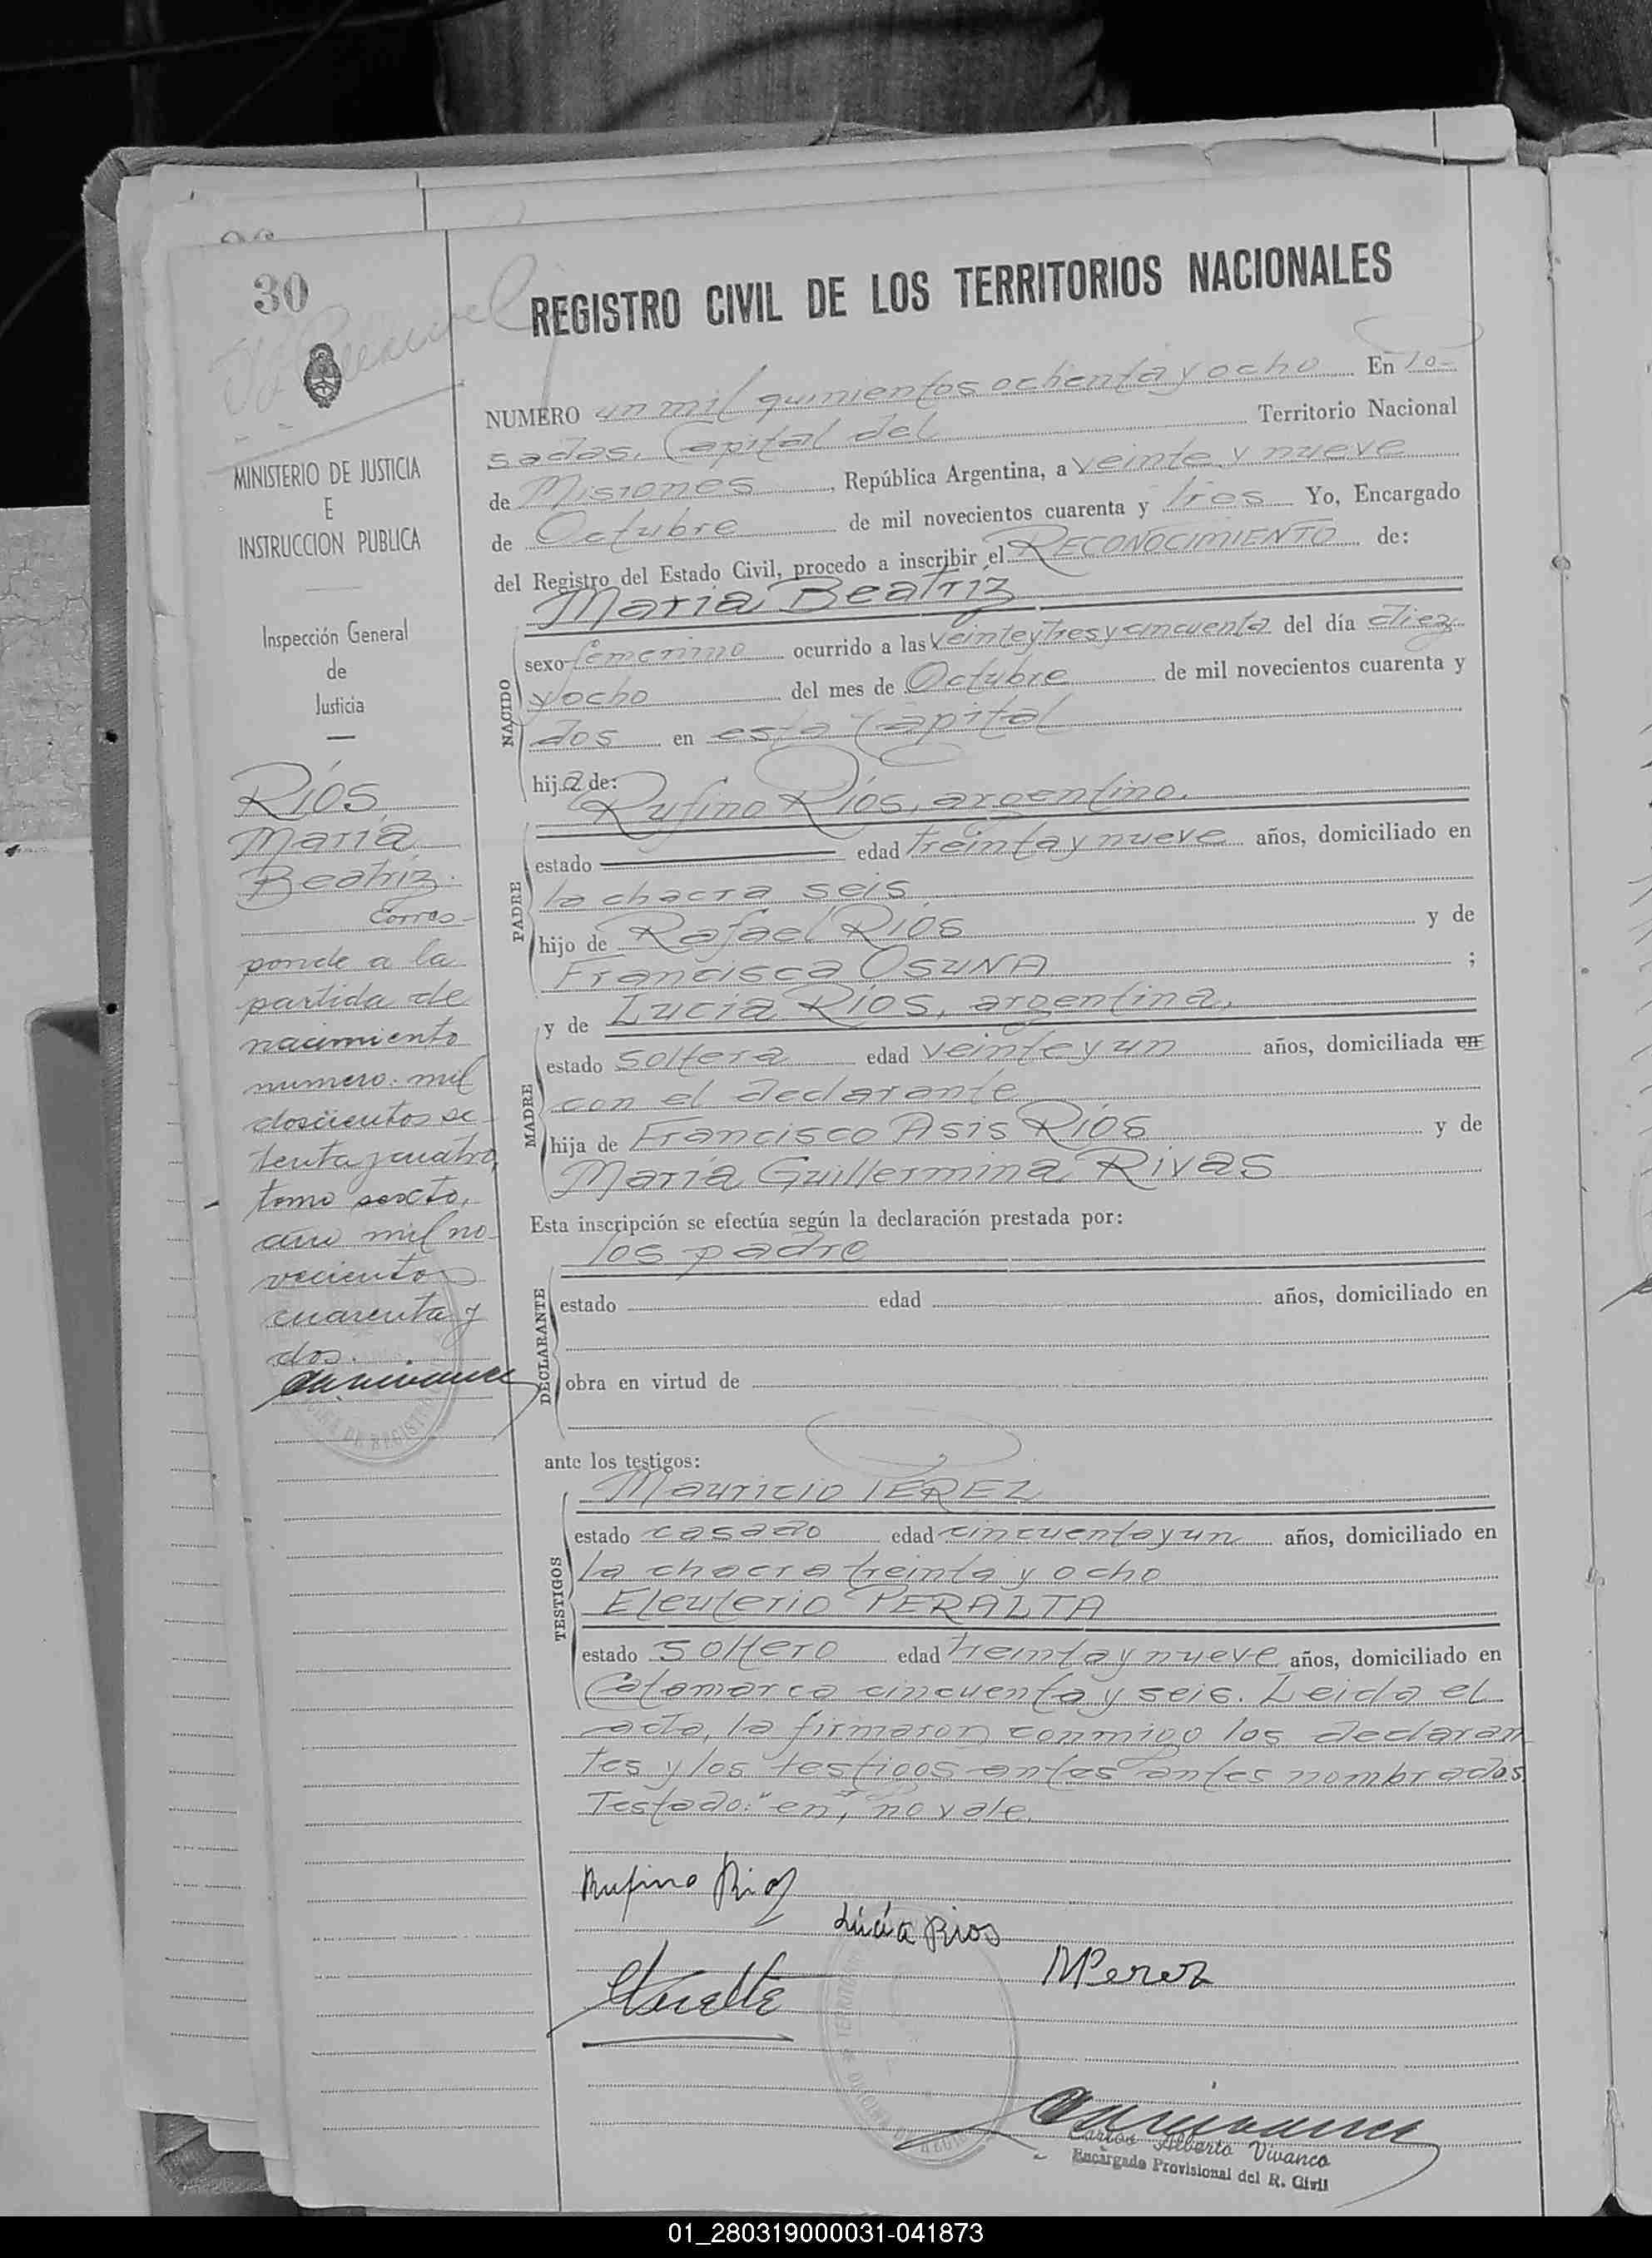 30
REGISTRO CIVIL DE LOS TERRITORIOS NACIONALES
MINISTERIO DE JUSTICIA
E
INSTRUCCION PUBLICA
Inspección General
de
Justicia
Ríos
María
Beatriz.
Corres-
ponde a la
partida de
nacimiento
numero: mil
doscientos se-
tenta y cuatro,
tomo sexto,
año mil no-
vecientos
cuarenta y
dos.
NUMERO un mil quinientos ochenta y ocho En Po-
sadas, Capital del Territorio Nacional
de Misiones, República Argentina, a veinte y nueve
de Octubre de mil novecientos cuarenta y tres Yo, Encargado
del Registro del Estado Civil, procedo a inscribir el RECONOCIMIENTO de:
María Beatriz
NACIDO
sexo femenino ocurrido a las veinte y tres y cincuenta del día diez
y ocho del mes de Octubre de mil novecientos cuarenta y
dos en esta Capital
hija de:
Rufino Ríos, argentino.
PADRE
estado edad treinta y nueve años, domiciliado en
la chacra seis
hijo de Rafael Ríos y de
Francisca OSUNA ;
y de Lucía Ríos, argentina,
MADRE
estado soltera edad veinte y un años, domiciliada en
con el declarante
hija de Francisco Asis Ríos y de
María Guillermina Rivas
Esta inscripción se efectúa según la declaración prestada por:
los padre
DECLARANTE
estado edad años, domiciliado en
obra en virtud de
ante los testigos:
Mauricio PEREZ
TESTIGOS
estado casado edad cincuenta y un años, domiciliado en
la chacra treinta y ocho
Eleuterio PERALTA
estado soltero edad treinta y nueve años, domiciliado en
Catamarca cincuenta y seis. Leida el
acta, la firmaron conmigo los declaran
tes y los testigos antes antes nombrados
Testado: "en", no vale.
Rufino Rios
Lucía Rios
MPerez
Carlos Alberto Vivanco
Encargado Provisional del R. Civil
01_280319000031-041873